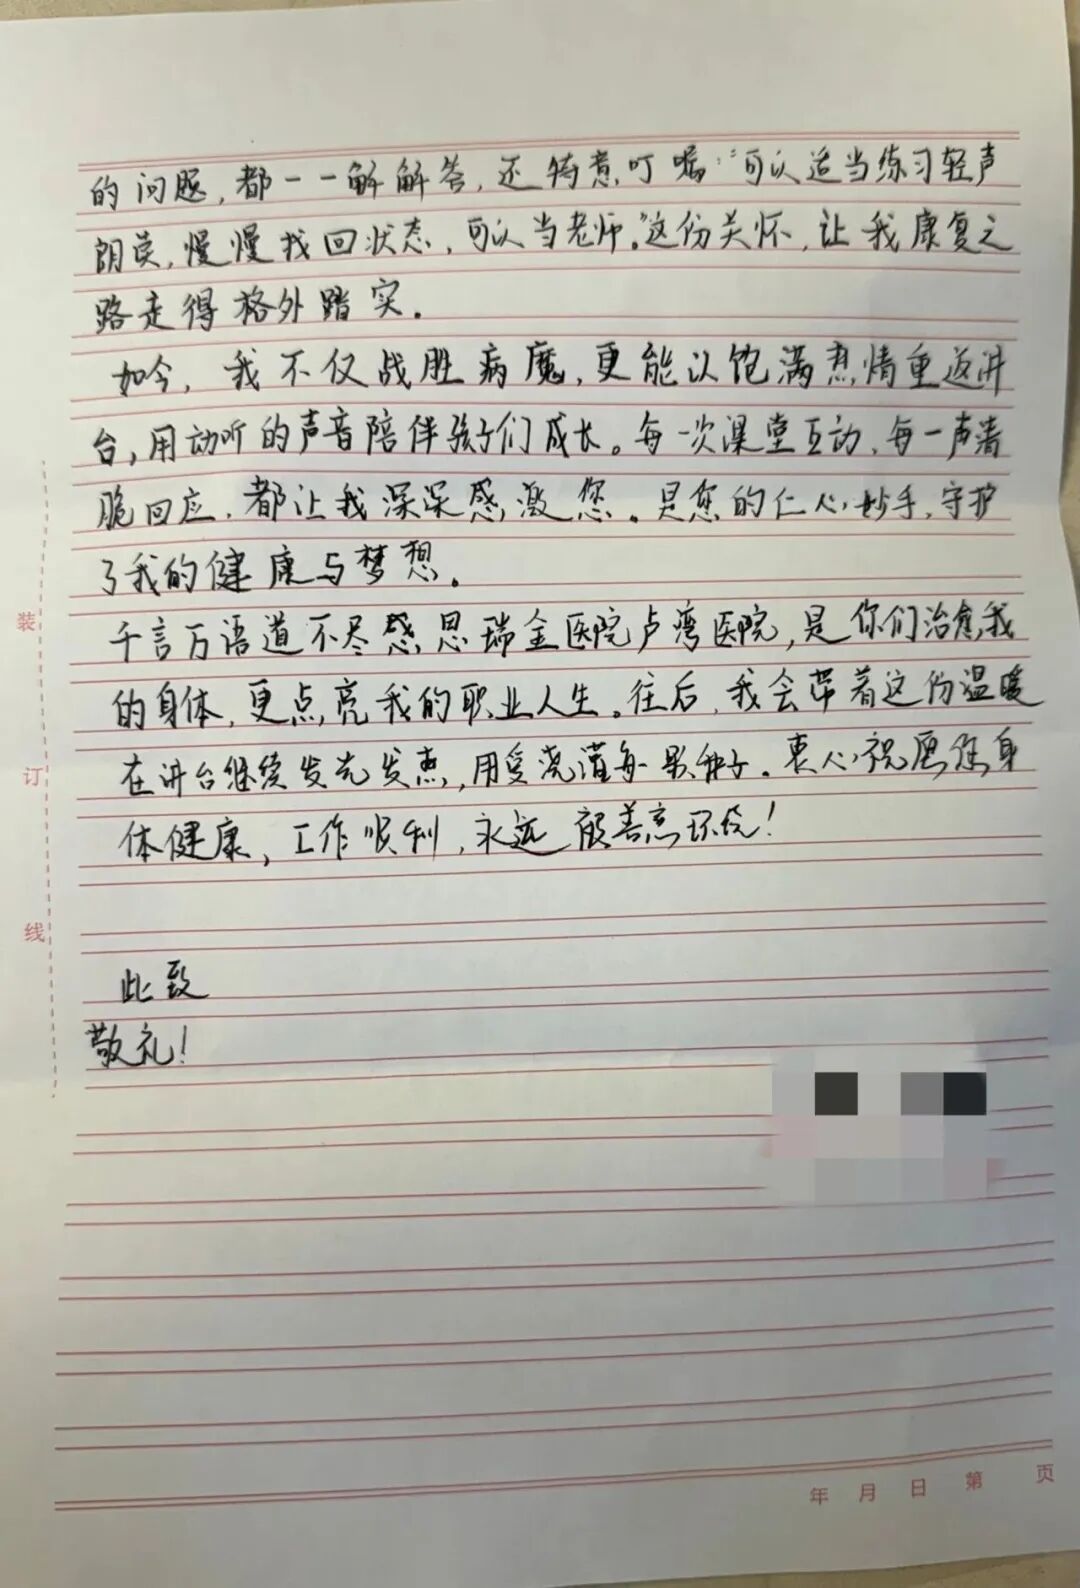 的问题，都一一解解答，还特意叮嘱：“可以适当练习轻声
朗读，慢慢找回状态，可以当老师。”这份关怀，让我康复之
路走得格外踏实。
如今，我不仅战胜病魔，更能以饱满热情重返讲
台，用动听的声音陪伴孩子们成长。每一次课堂互动，每一声清
脆回应，都让我深深感激您。是您的仁心妙手，守护
了我的健康与梦想。
千言万语道不尽感恩瑞金医院卢湾医院，是你们治愈我
的身体，更点亮我的职业人生。往后，我会带着这份温暖
在讲台继续发光发热，用爱浇灌每一颗种子。衷心祝愿您身
体健康，工作顺利，永远被善意环绕！
此致
敬礼！
装
订
线
年 月 日 第 页